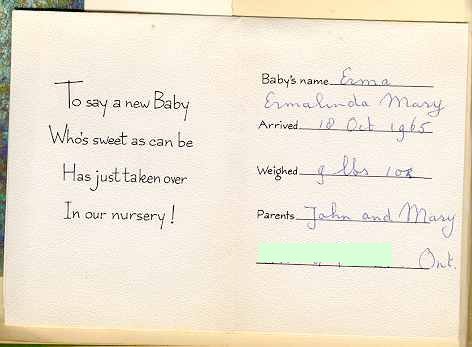 To say a new Baby
Who's sweet as can be
Has just taken over
In our nursery!
Baby's name Erma
Ermalinda Mary
Arrived 18 Oct 1965
Weighed 9 lbs 1 oz
Parents John and Mary
Ont.